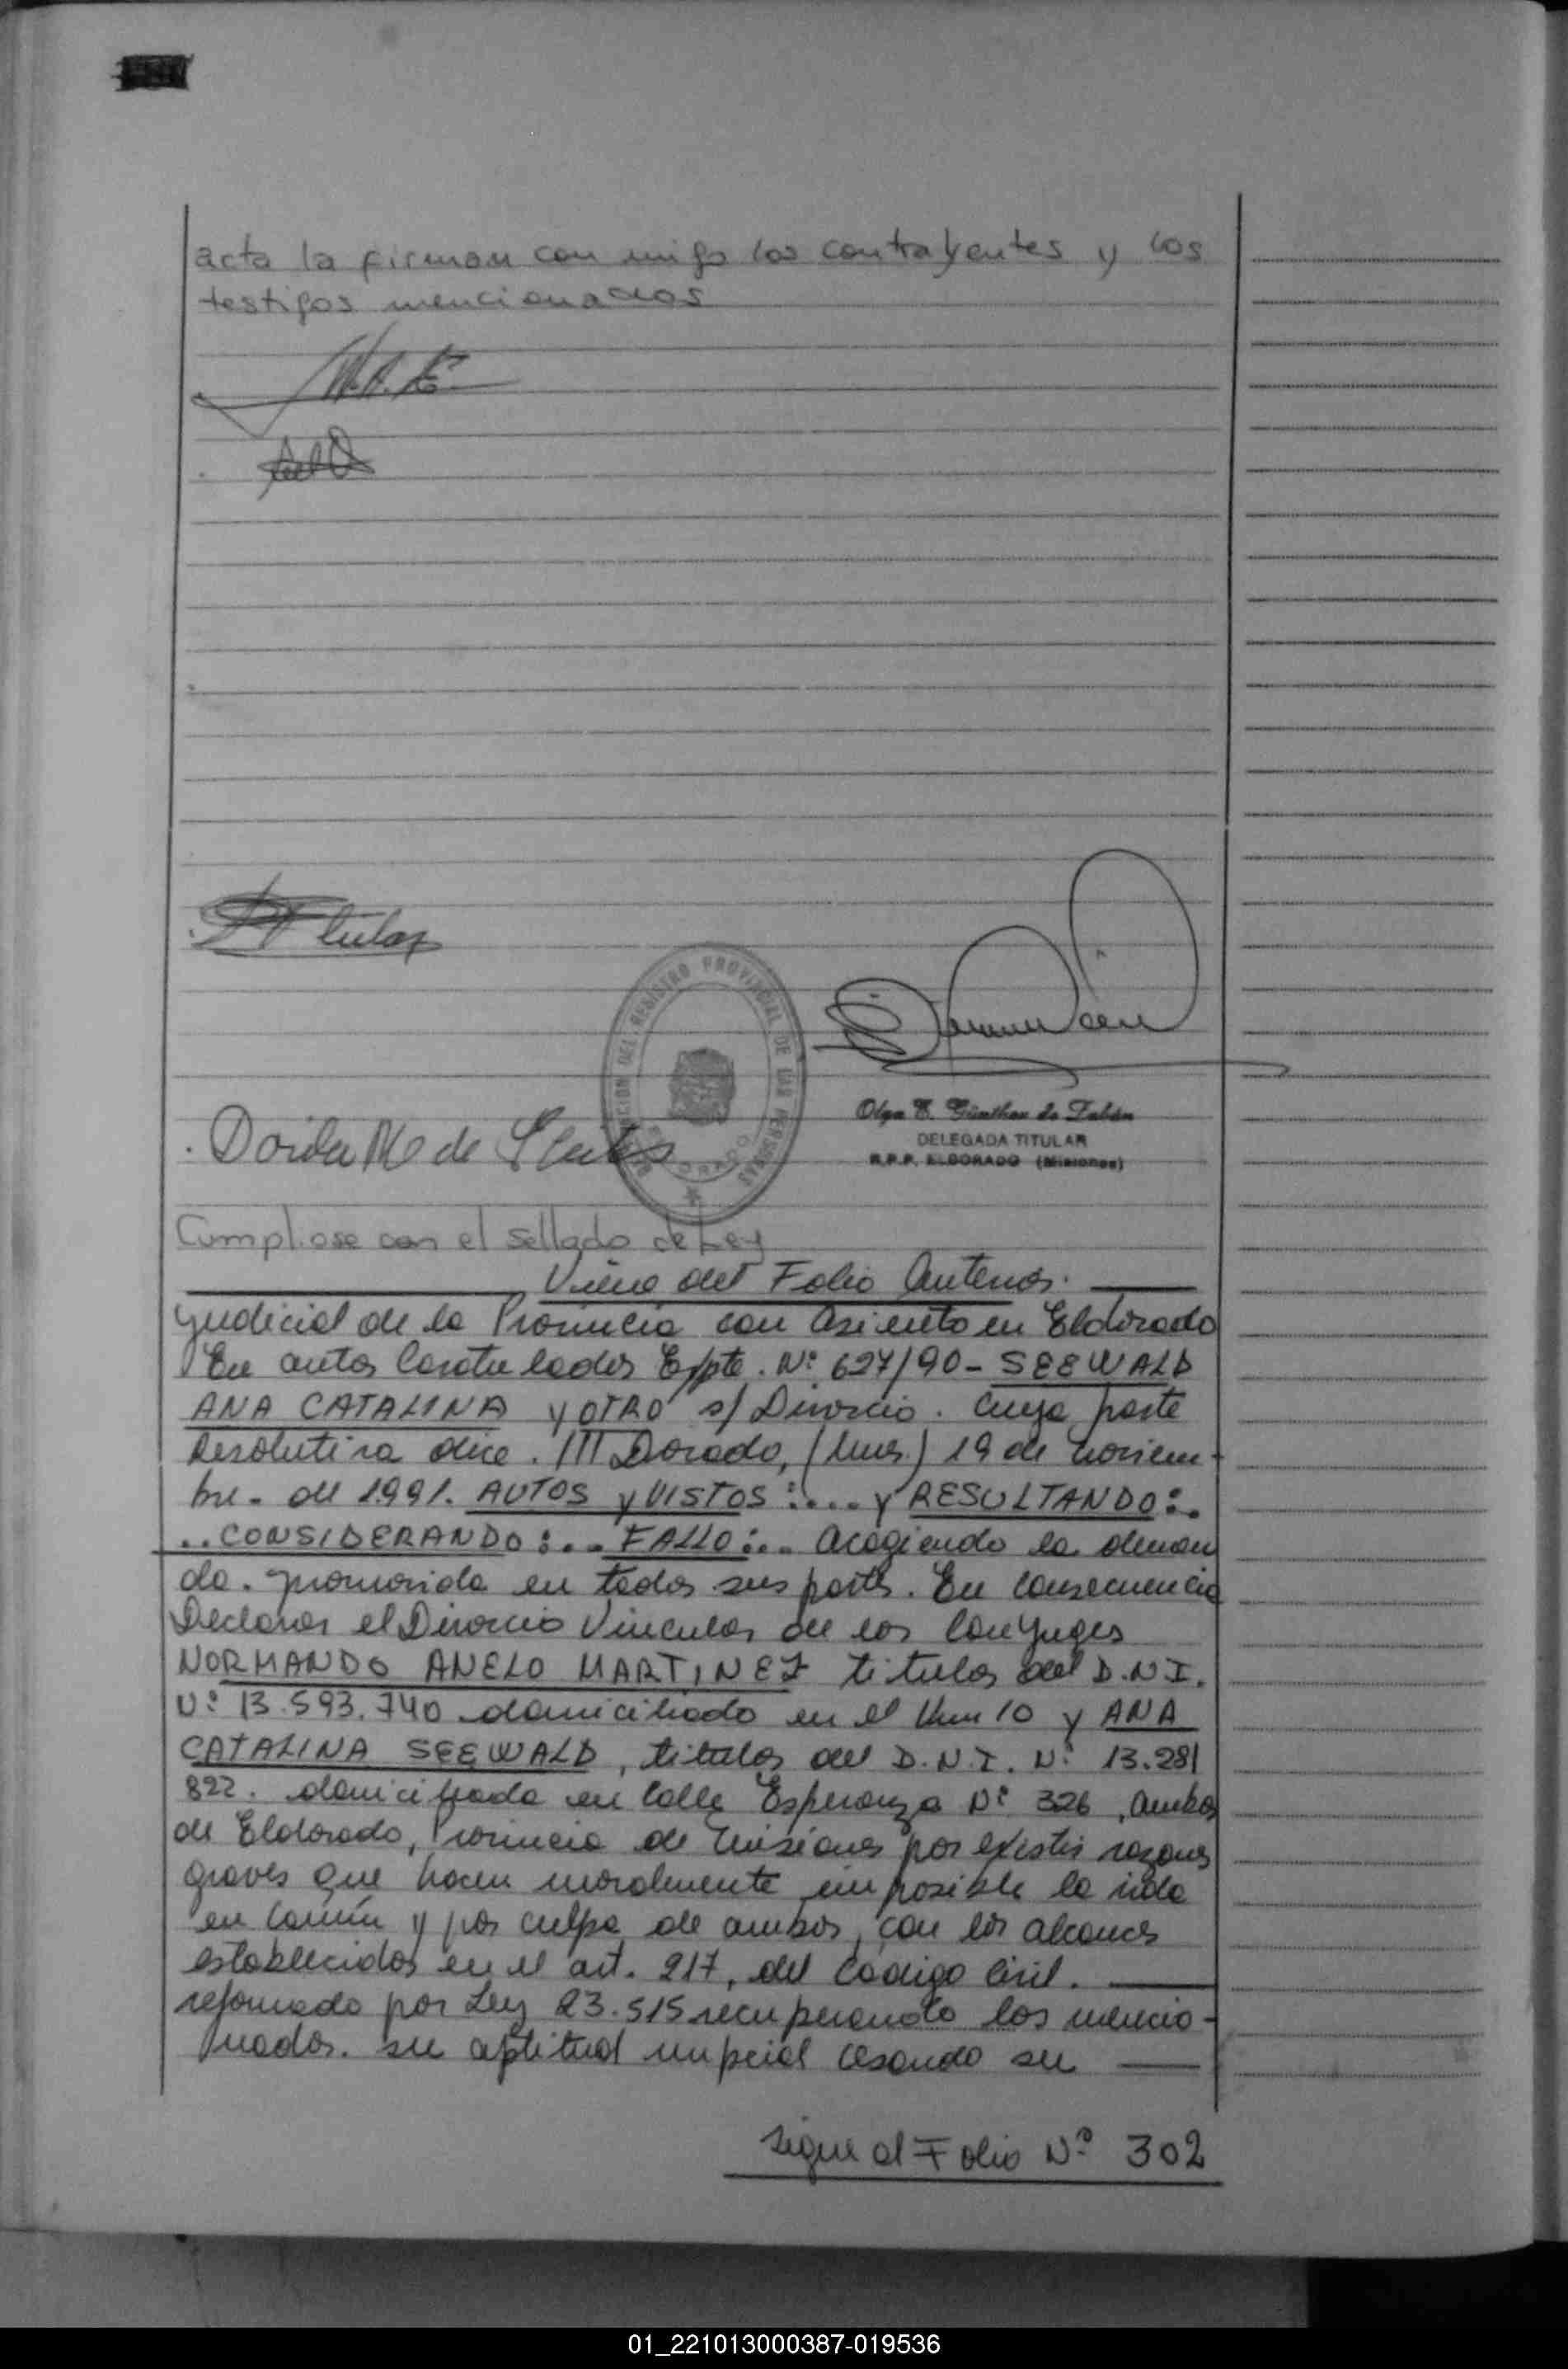 acta la firman con migo los contrayentes y los
testigos mencionados
Dorila M de
DELEGACION DEL REGISTRO PROVINCIAL DE LAS PERSONAS
ELDORADO
Olga E. Günther de Fabián
DELEGADA TITULAR
R.P.P. ELDORADO (Misiones)
Cumpliose con el sellado de Ley
Viene del Folio Anterior.
Judicial de la Provincia con asiento en Eldorado
En autos Caratulados Expte. Nº 627/90 - SEEWALD
ANA CATALINA y OTRO s/ Divorcio. Cuya parte
Resolutiva dice. ///Dorado, (Mnes.) 19 de noviem-
bre. de 1991. AUTOS y VISTOS:.... y RESULTANDO:..
..CONSIDERANDO:... FALLO:... Acogiendo la deman
da. promovida en todas sus partes. En consecuencia
Declarar el Divorcio Vincular de los Conyuges
NORMANDO ANELO MARTINEZ titular del D.N.I.
Nº 13.593.740 domiciliado en el Km 10 y ANA
CATALINA SEEWALD, titular del D.N.I. Nº 13.281
822. domiciliada en Calle Esperanza Nº 326, ambos
de Eldorado, Provincia de Misiones por existir razones
graves que hacen moralmente imposible la vida
en común y por culpa de ambos, con los alcances
establecidos en el art. 217, del Código Civil.
reformado por Ley 23.515 recuperando los mencio-
nados. su aptitud nupcial cesando su
sigue al Folio Nº 302
01_221013000387-019536